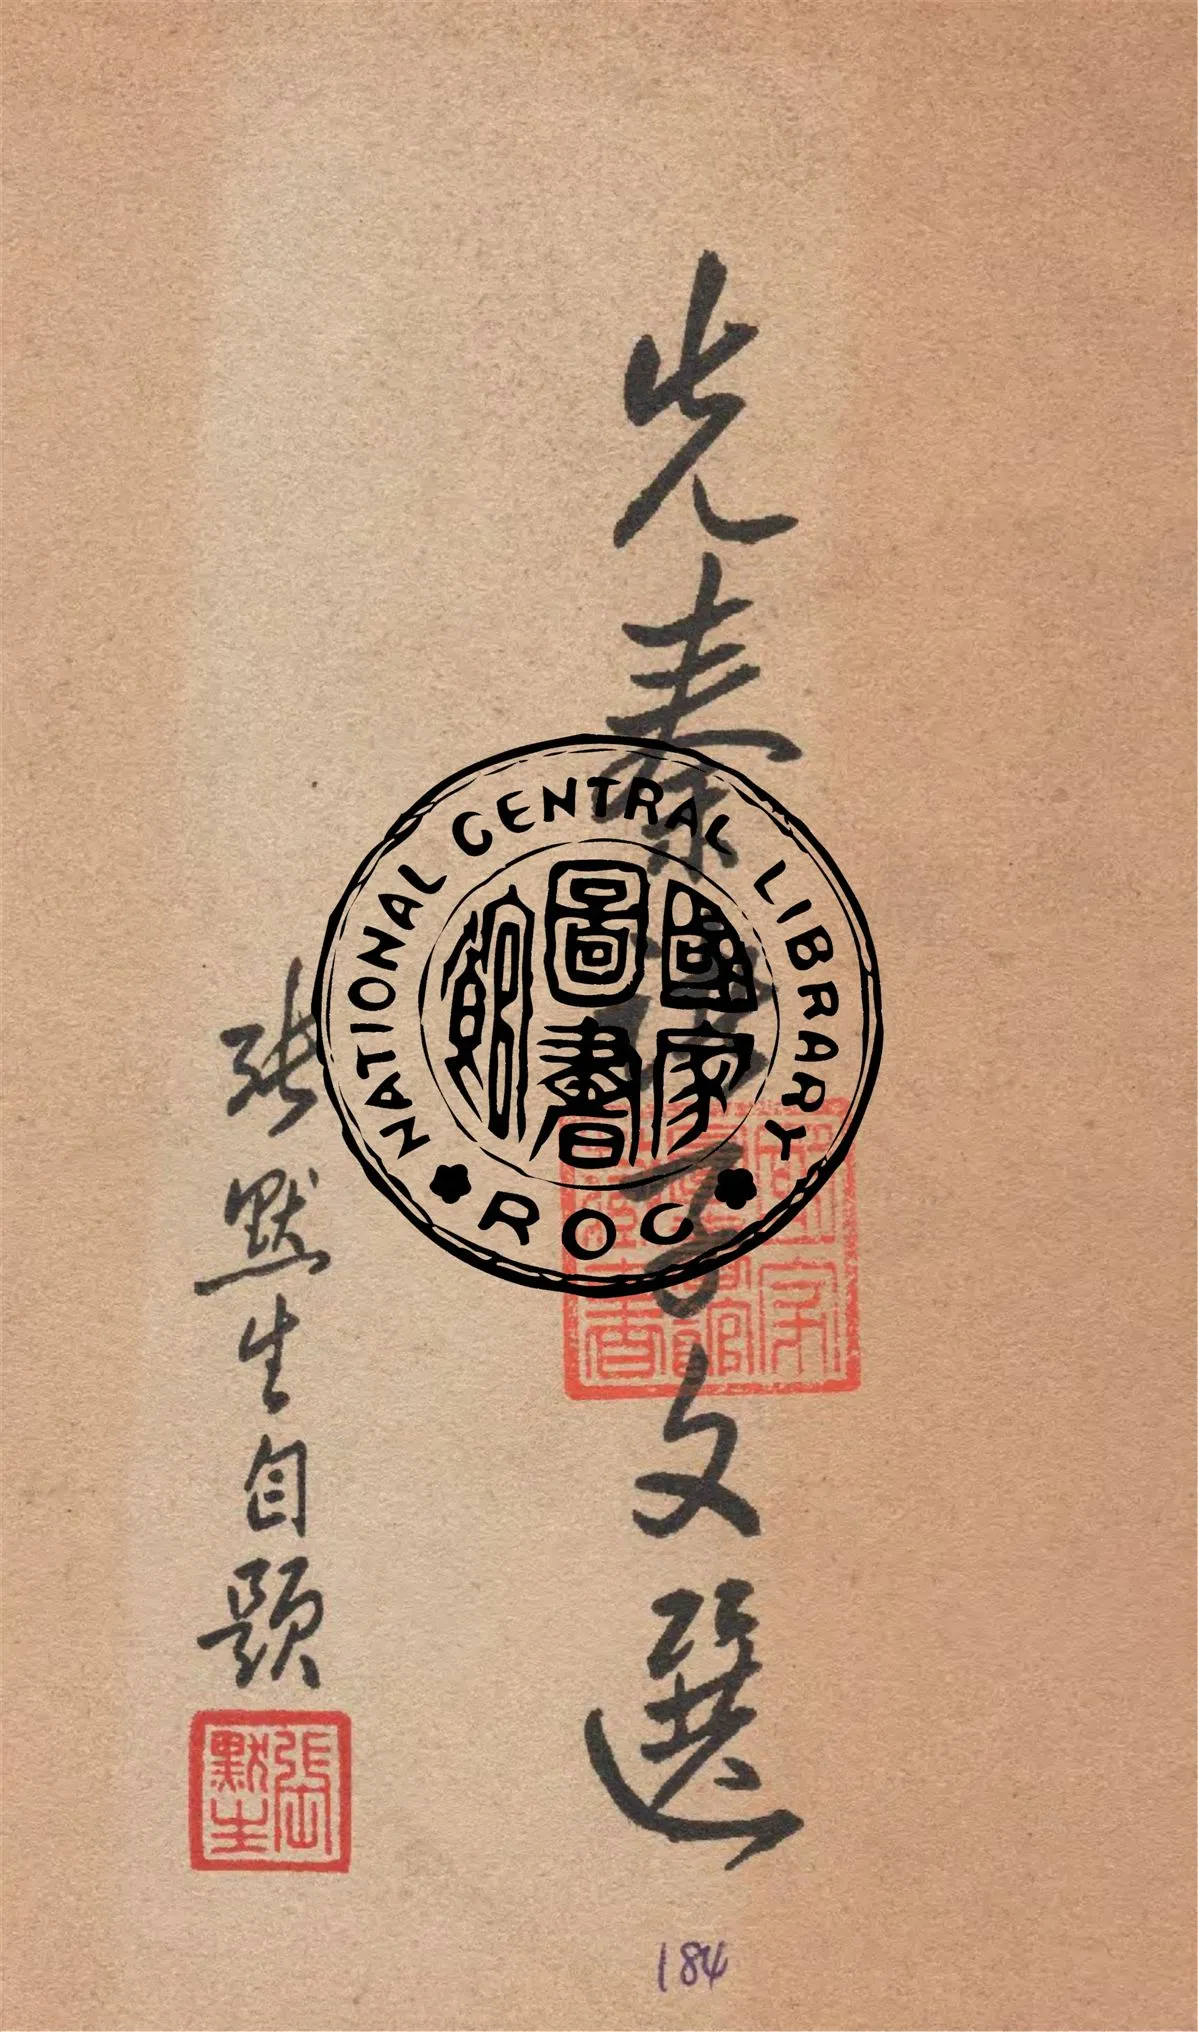 先秦諸子文選
張默生自題
張默生
NATIONAL CENTRAL LIBRARY
國家圖書館
ROC
184